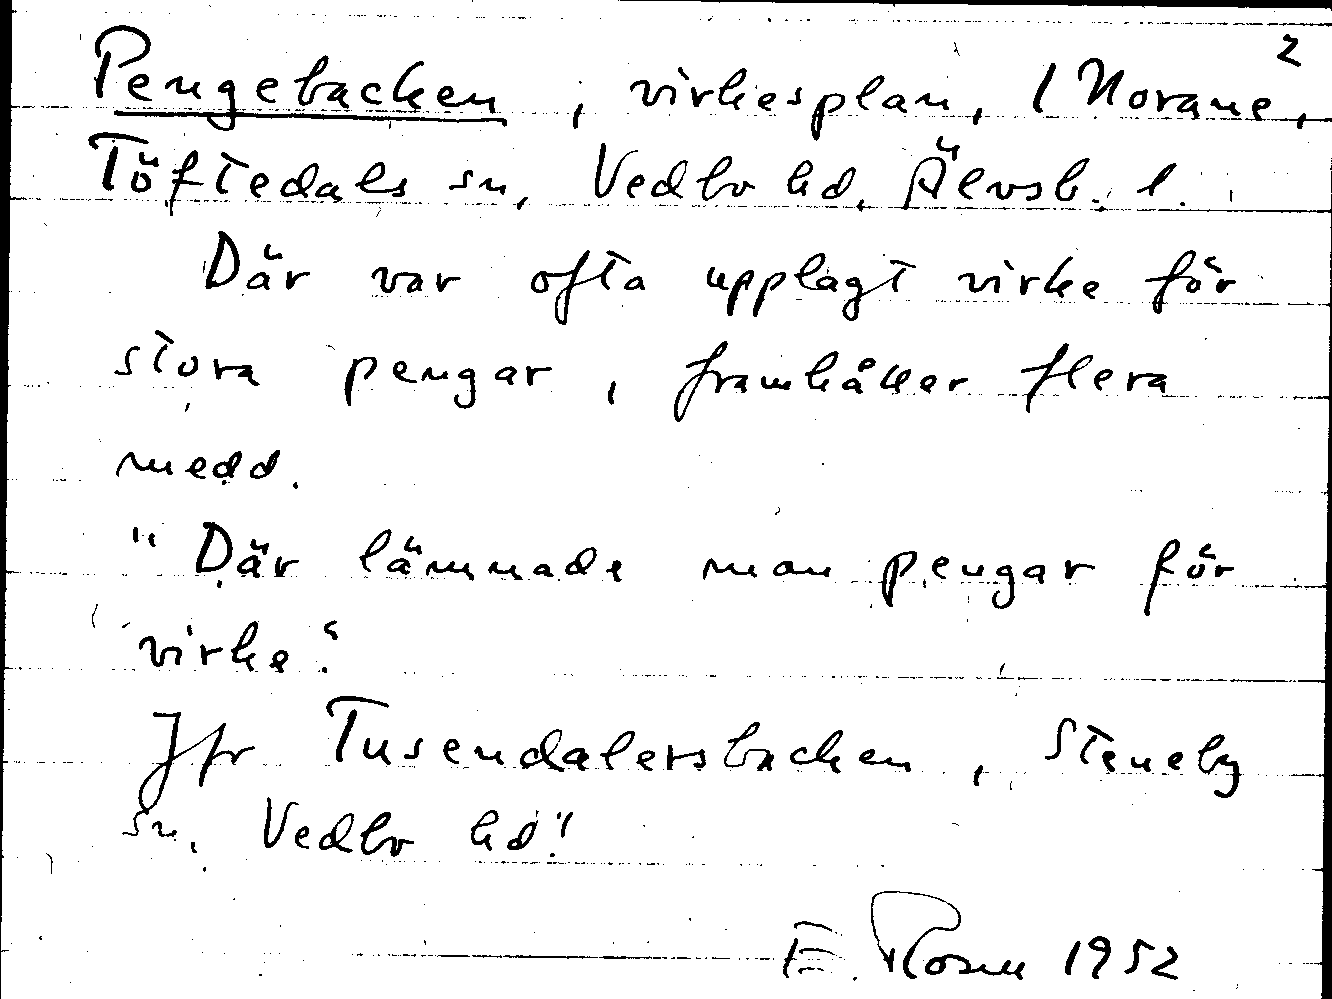 2
Pengebacken, virkesplan, 1 Norane,
Töftedals sn, Vedbo hd, Älvsb. l.
Där var ofta upplagt virke för
stora pengar, framhåller flera
medd.
"Där lämnade man pengar för
virke."
Jfr Tusendalersbacken, Steneby
sn, Vedbo hd."
E. Rosén 1952